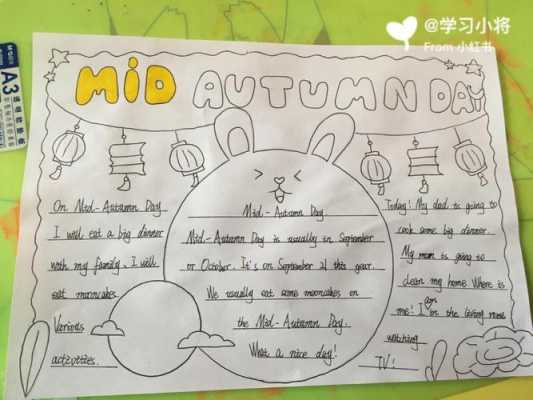 @学习小将
From 小红书
A3
MID AUTUMN DAY
On Mid-Autumn Day
I will eat a big dinner
with my family. I will
eat mooncakes
Various
activities.
Mid-Autumn Day
Mid-Autumn Day is usually in September
or October. It's on September 21 this year.
We usually eat some mooncakes on
the Mid-Autumn Day.
What a nice day!
Today! My dad is going to
cook some big dinner.
My mom is going to
clean my home Where is
me! I am in the living room
watching
TV!